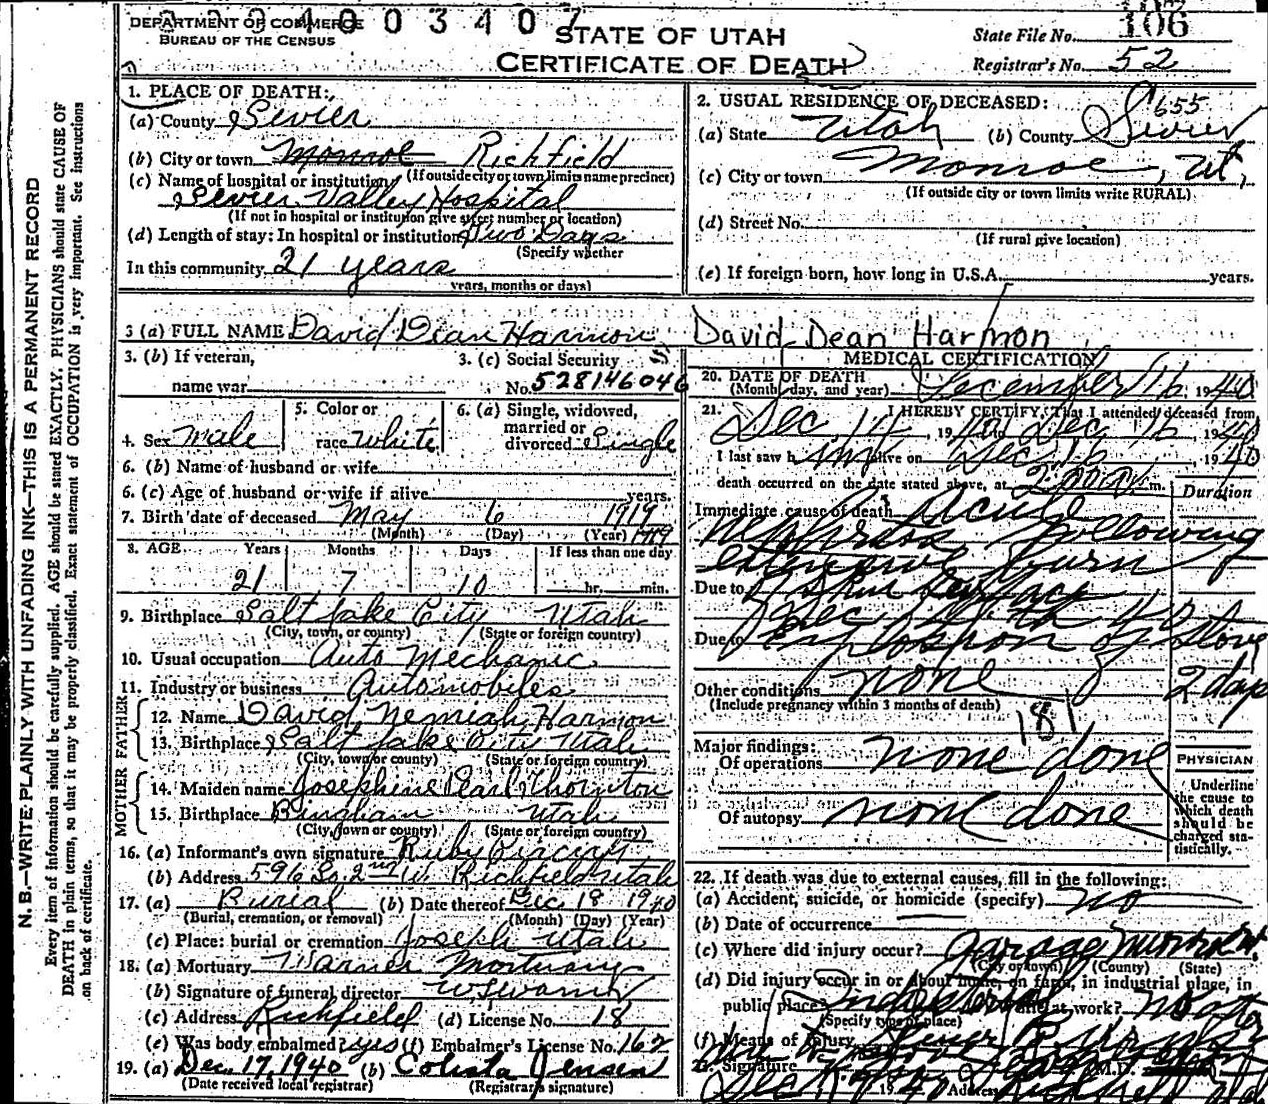 DEPARTMENT OF COMMERCE
BUREAU OF THE CENSUS
400 3407
STATE OF UTAH
CERTIFICATE OF DEATH
State File No. 106
Registrar's No. 52
N. B.—WRITE PLAINLY WITH UNFADING INK—THIS IS A PERMANENT RECORD
Every item of information should be carefully supplied. AGE should be stated EXACTLY. PHYSICIANS should state CAUSE OF
DEATH in plain terms, so that it may be properly classified. Exact statement of OCCUPATION is very important. See instructions
on back of certificate.
1. PLACE OF DEATH:
(a) County Sevier
(b) City or town Monroe Richfield
(If outside city or town limits name precinct)
(c) Name of hospital or institution
Sevier Valley Hospital
(If not in hospital or institution give street number or location)
(d) Length of stay: In hospital or institution Two Days
(Specify whether
In this community 21 years
years, months or days)
2. USUAL RESIDENCE OF DECEASED:
655
(a) State Utah (b) County Sevier
(c) City or town Monroe, Ut.
(If outside city or town limits write RURAL)
(d) Street No.
(If rural give location)
(e) If foreign born, how long in U.S.A. years.
3 (a) FULL NAME David Dean Harmon David Dean Harmon
3. (b) If veteran,
name war
3. (c) Social Security
No. 528146046
4. Sex Male
5. Color or
race White
6. (a) Single, widowed,
married or
divorced Single
6. (b) Name of husband or wife
6. (c) Age of husband or wife if alive years.
7. Birth date of deceased May 6 1919
(Month) (Day) (Year) 1919
8. AGE Years Months Days If less than one day
21 7 10 hr. min.
9. Birthplace Salt Lake City Utah
(City, town, or county) (State or foreign country)
10. Usual occupation Auto Mechanic
11. Industry or business Automobiles
FATHER
12. Name David Nemiah Harmon
13. Birthplace Salt Lake City Utah
(City, town or county) (State or foreign country)
MOTHER
14. Maiden name Josephine Pearl Thornton
15. Birthplace Bingham Utah
(City, town or county) (State or foreign country)
16. (a) Informant's own signature Ruby
(b) Address 596 So. 2nd W. Richfield Utah
17. (a) Burial (b) Date thereof Dec. 18 1940
(Burial, cremation, or removal) (Month) (Day) (Year)
(c) Place: burial or cremation Joseph Utah
18. (a) Mortuary Warner Mortuary
(b) Signature of funeral director
(c) Address Richfield (d) License No. 18
(e) Was body embalmed? yes (f) Embalmer's License No. 162
19. (a) Dec. 17, 1940 (b) Jensen
(Date received local registrar) (Registrar's signature)
MEDICAL CERTIFICATION
20. DATE OF DEATH
(Month, day, and year) December 16, 1940
21. I HEREBY CERTIFY, That I attended deceased from
Dec. 14, 1940, to Dec 16, 1940
I last saw him alive on Dec 16, 1940
death occurred on the date stated above, at 2:00 m.
Duration
Immediate cause of death Acute
Following
extensive burn
Due to
Dec 14th 40
Due to Explosion of Stove
2 days
Other conditions none
(Include pregnancy within 3 months of death)
181
Major findings:
Of operations none done
Of autopsy none done
PHYSICIAN
Underline
the cause to
which death
should be
charged sta-
tistically.
22. If death was due to external causes, fill in the following:
(a) Accident, suicide, or homicide (specify) no
(b) Date of occurrence
(c) Where did injury occur? Garage Monroe Ut.
(City or town) (County) (State)
(d) Did injury occur in or about home, on farm, in industrial place, in
public place? Industrial While at work?
(Specify type of place)
(f) Means of injury
23. Signature M.D.
Dec 17 1940 Address Richfield